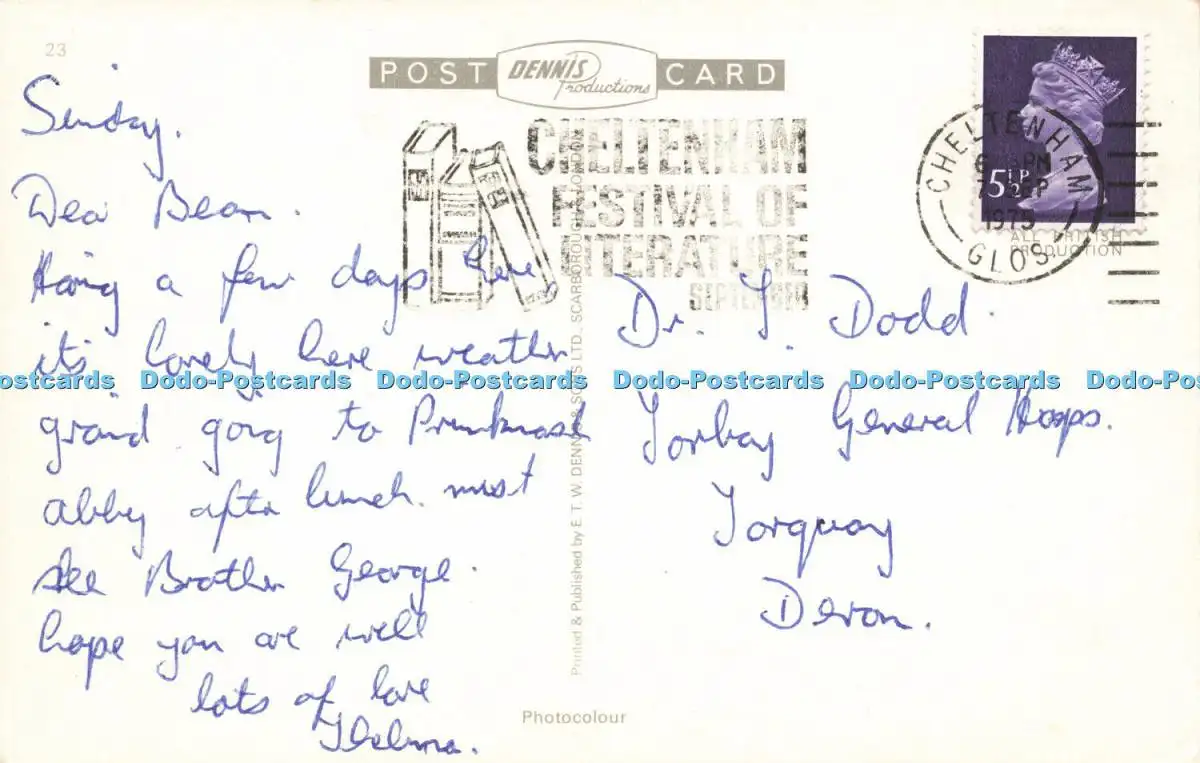 23
POST CARD
DENNIS Productions
CHELTENHAM
FESTIVAL OF
LITERATURE
SEPTEMBER
CHELTENHAM
1975
GLOS
5½P
ALL BRITISH
PRODUCTION
Sunday.
Dear Bean.
Having a few days here,
it's lovely here weather
grand going to Prinknash
abbey after lunch. must
see Brother George.
hope you are well
lots of love
Thelma.
Dr. T. Dodd.
Torbay General Hosps.
Torquay
Devon.
Printed & Published by E. T. W. DENNIS & SONS LTD., SCARBOROUGH & LONDON
Photocolour
Dodo-Postcards Dodo-Postcards Dodo-Postcards Dodo-Postcards Dodo-Postcards